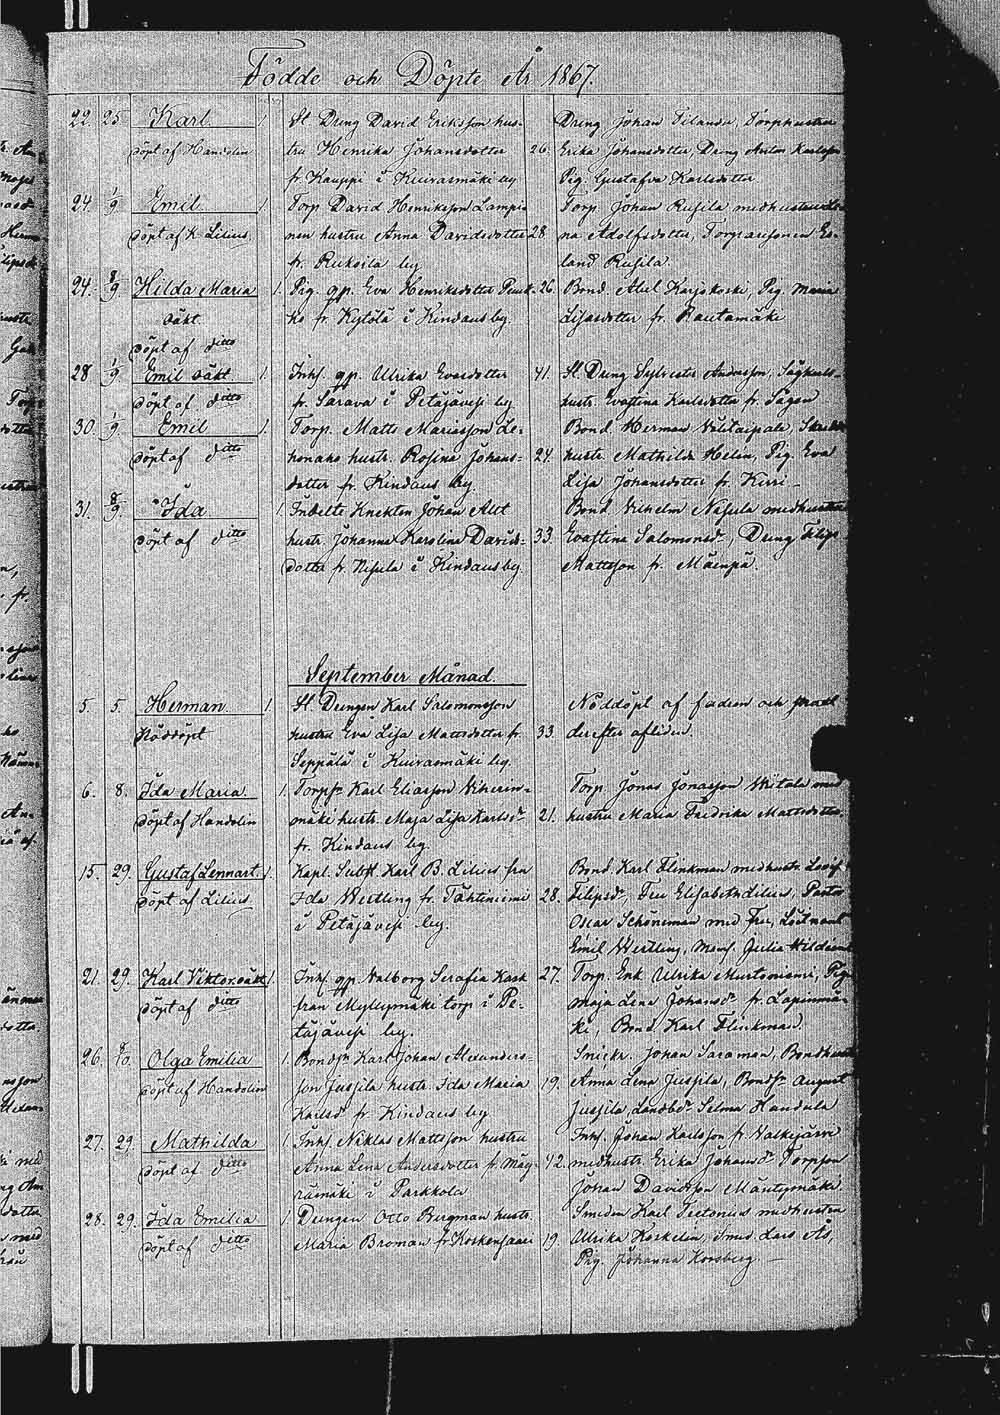 Födde och Döpte År 1867.
22. 25 Karl 1 St. Dreng David Eriksson hus- Dreng Johan Filander, Torphustru
döpt af Handolin tru Henrika Johansdotter 26. Erika Johansdotter, Dreng Anton Karlsson
fr Kauppi i Kuivasmäki by Pig. Gustafva Karlsdotter
24. 1/9. Emil 1. Torp David Henriksson Lampi- Torp Johan Rusila med hustru
döpt af K Lilius nen hustru Anna Davidsdotter 28. na Adolfsdotter, Torparesonen Es-
fr. Ruksila by land Rusila.
24. 8/9 Hilda Maria 1. Pig. gp. Eva Henriksdotter 26. Bond. Abel Karjokoski, Pig. Maria
oäkt. ko fr. Kytölä i Kindaus by. Lisasdotter fr. Rautamäki
döpt af ditto
28 1/9. Emil oäkt. 1. Inhs. gp. Ulrika Evasdotter 41. St. Dreng Sylvester Andersson,
döpt af ditto fr. Sarava i Petäjävesi by hustr. Evastina Karlsdotter fr. Sågen
30. 1/9. Emil 1. Torp. Matts Mariasson Le- Bond Herman Välitaipale,
döpt af ditto honaho hustr. Rosina Johans- 24. hustr. Mathilda Helin, Pig. Eva
dotter fr. Kindaus by. Lisa Johansdotter fr. Kirri
31. 8/9. Ida 1. Indelte Knekten Johan Alt Bond Vilhelm Nisula med hustru
döpt af ditto hustr Johanna Karolina Davids- 33. Evastina Salomonsd., Dreng Filip
dotter fr. Nisula i Kindaus by. Mattsson fr. Mäenpä.
September Månad.
5. 5. Herman 1. St Drengen Karl Salomonsson Nöddöpt af fadren och
Nöddöpt hustru Eva Lisa Mattsdotter fr. 33. derefter afliden.
Seppälä i Kuivasmäki by.
6. 8. Ida Maria 1. Karl Eliasson Vikerin- Torp Jonas Jonasson med
döpt af Handolin mäki hustr. Maja Lisa Karlsdr 21. hustru Maria Fredrika Mattsdotter
fr. Kindaus by.
15. 29. Gustaf Lennart. 1. Kapl. Subst Karl B. Lilius fru Bond. Karl Flinkman med hustr.
döpt af Lilius Ida Westling fr. Tähtiniemi 28. Filipsdr, Fru Elisabeth Lilius, Pastor
i Petäjävesi by. Oscar Schöneman med Fru, Löitnant
Emil Westling, Mams. Julia
21. 29. Karl Viktor oäkt 1. Inhs. gp. Valborg Serafia 27. Torp. Enk Ulrika Murtoniemi, Pig
döpt af ditto från Myllymäki torp i Pe- Maja Lena Johansdr fr. Lapinmä-
täjävesi by. ki, Bond. Karl Flinkman.
26. Olga Emilia 1. Bondsn Karl Johan Alexanders- Snickr. Johan Saraman, Bondhustru
döpt af Handolin son Jussila hustr. Ida Maria 19. Anna Lena Jussila, Bonds. August
Karlsdr fr Kindaus by Jussila, Selma Handula
27. 29. Mathilda 1. Inhs. Niklas Mattsson hustru Inhs. Johan Karlsson fr. Valkijärvi
döpt af ditto Anna Lena Andersdotter fr. Mäy- 42. med hustr. Erika Johansdr Torpson
rämäki i Parkkola Johan Davidsson Mäntymäki
28. 29. Ida Emilia 1. Drengen Otto Bergman hustr. Smeden Karl med hustru
döpt af ditto Maria Broman fr Koskensaari 19. Ulrika Koskelin, Smed. Lars Ås,
Pig. Johanna Korsberg.